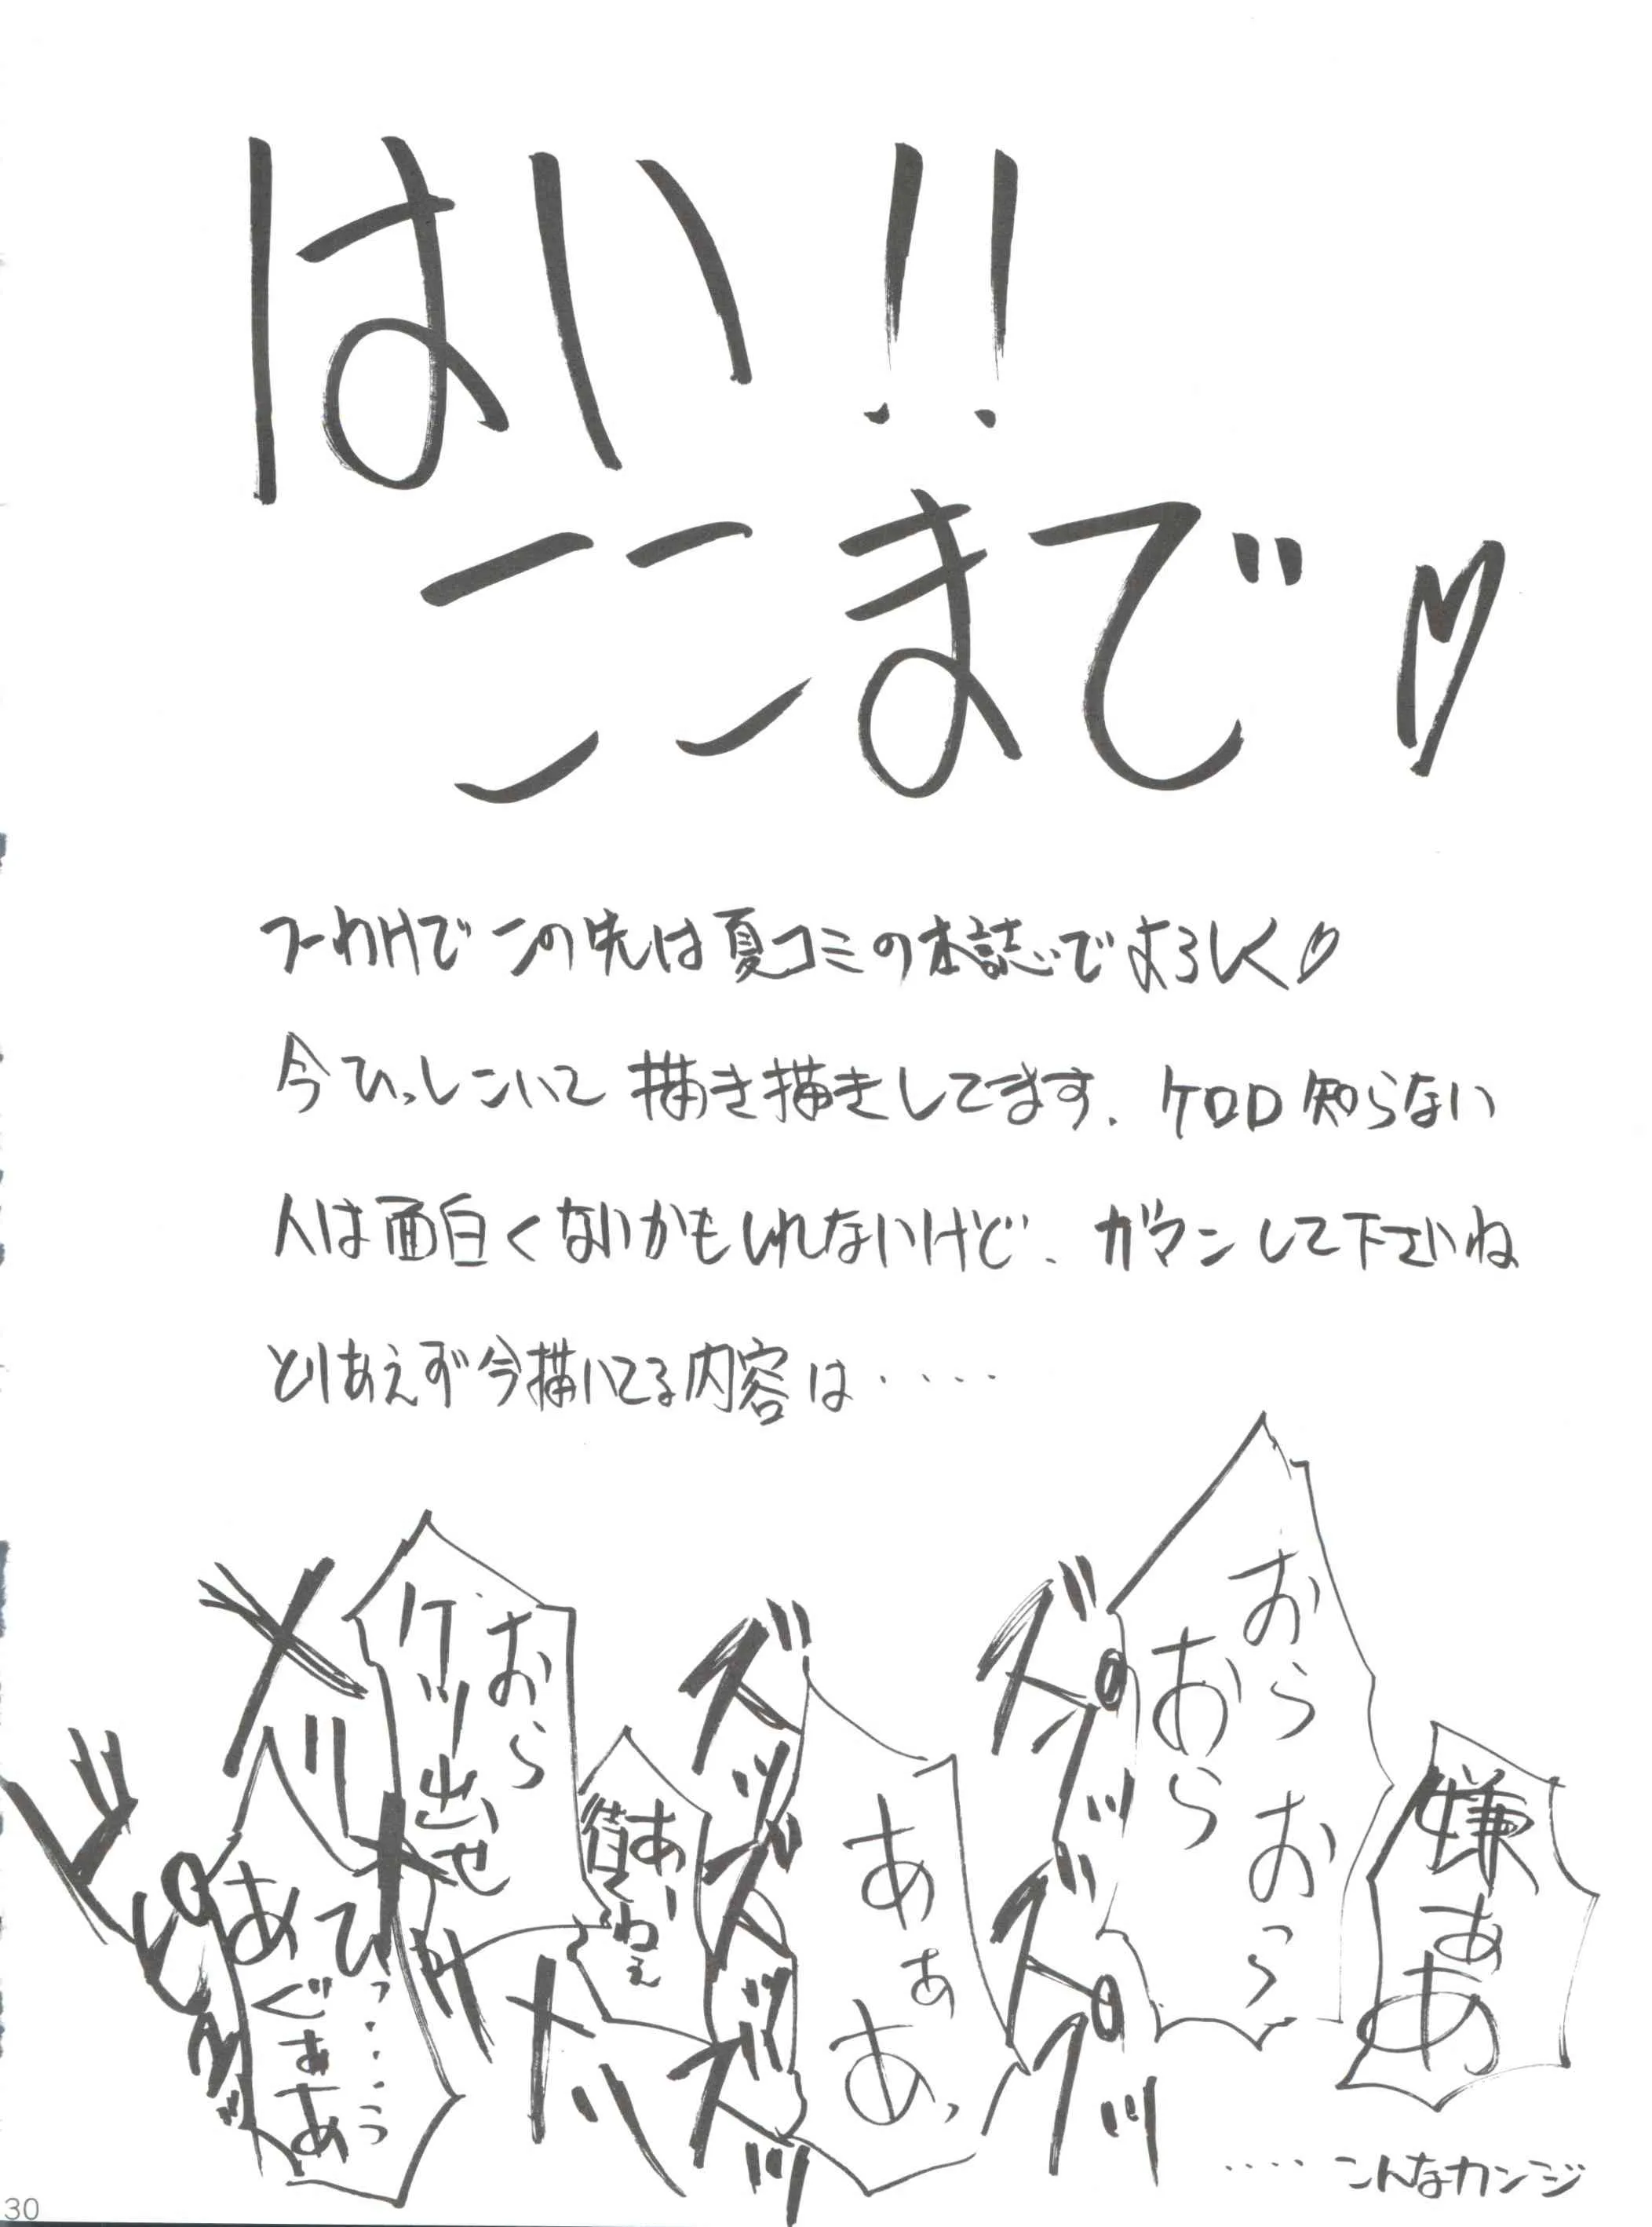 はい!!
ここまで♡
つーわけでこの先は夏コミの本誌でよろしく♡
今ひっしこいて描き描きしてます. ケロロ知らない
人は面白くないかもしれないけど、ガマンして下さいね
とりあえず今描いてる内容は‥‥‥
嫌ぁあ
おらおら
おらおら
ズグッ
ズグッ
あぁあっ
ズッ
ズッ
ズッ
おら
ケツ出せ
メリ
メリ
ひっ‥‥‥うっ
あぐぁあ
‥‥こんなカンジ
30